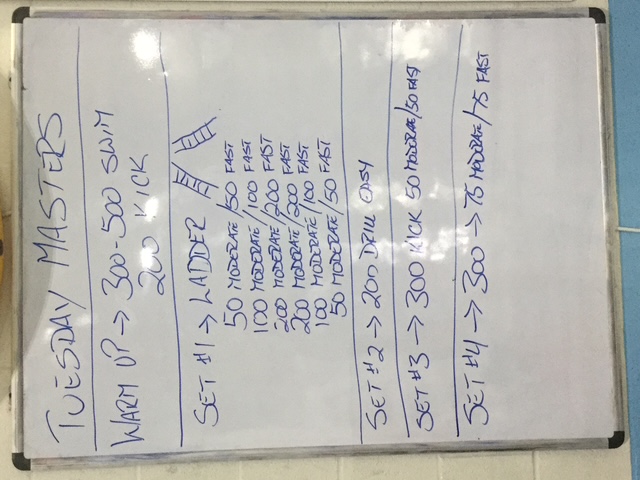 TUESDAY MASTERS
WARM UP → 300-500 SWIM
200 KICK
SET #1 → LADDER
50 MODERATE/50 FAST
100 MODERATE/100 FAST
200 MODERATE/200 FAST
200 MODERATE/200 FAST
100 MODERATE/100 FAST
50 MODERATE/50 FAST
SET #2 → 200 DRILL EASY
SET #3 → 300 KICK 50 MODERATE/50 FAST
SET #4 → 300 → 75 MODERATE/75 FAST